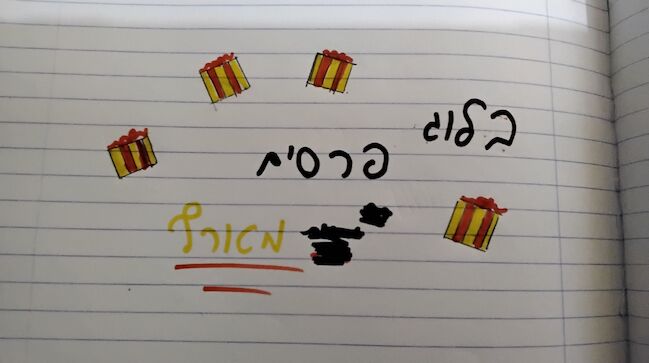 בלוג
פרסים
מטורף